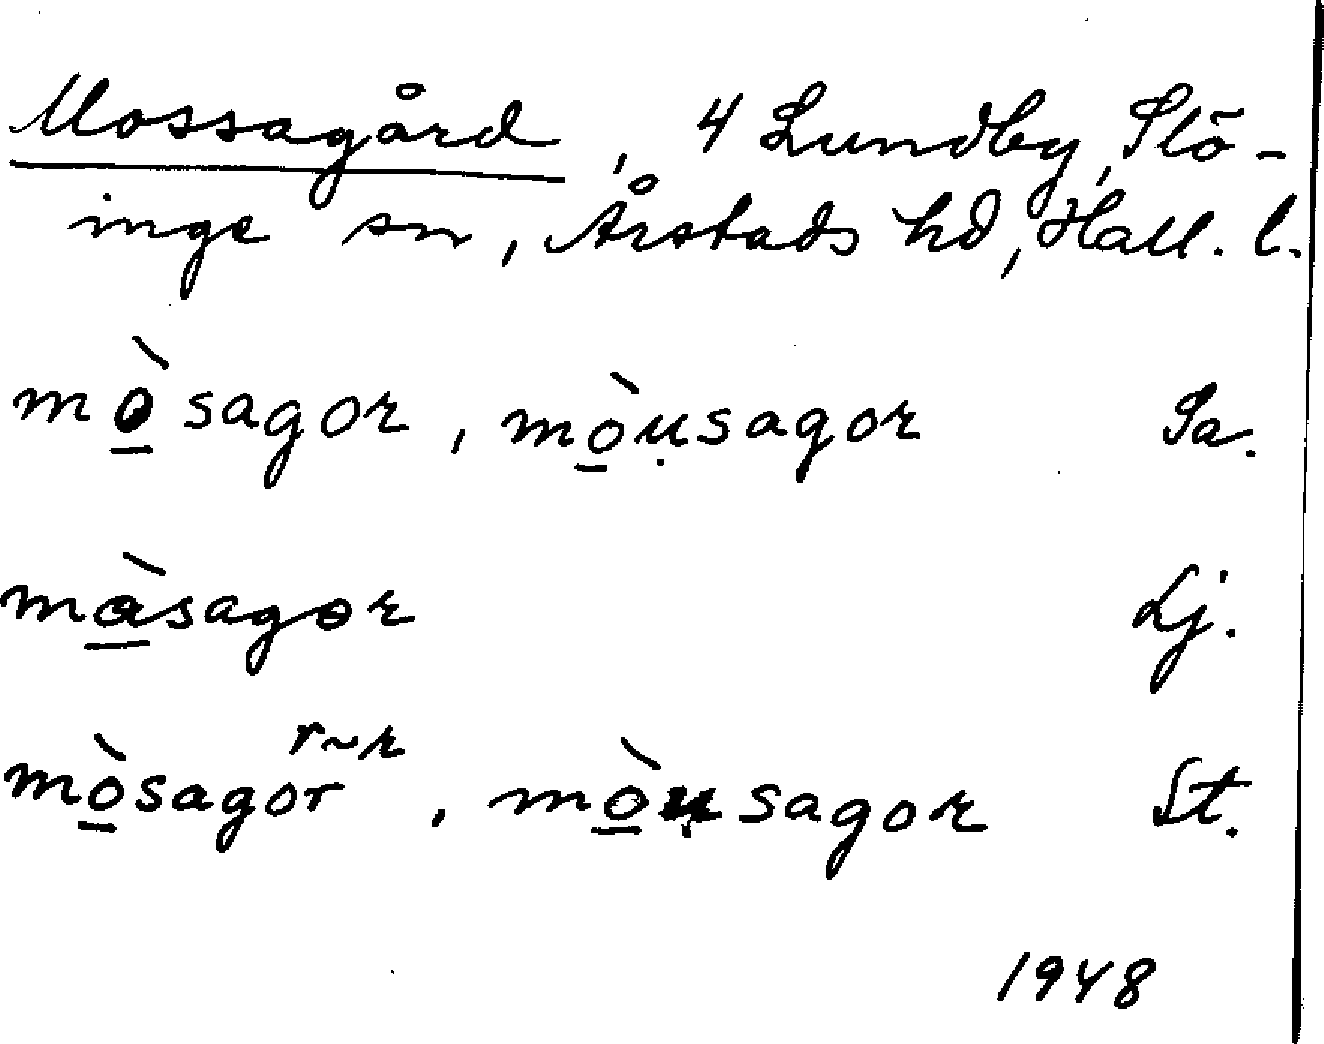 Mossagård, 4 Lundby, Slö-
inge sn, Årstads hd, Hall. l.
mò̱sagor, mò̱ụsagor Sa.
mà̱sagor Lj.
r~r
mò̱sagor, mò̱ụsagor St.
1948